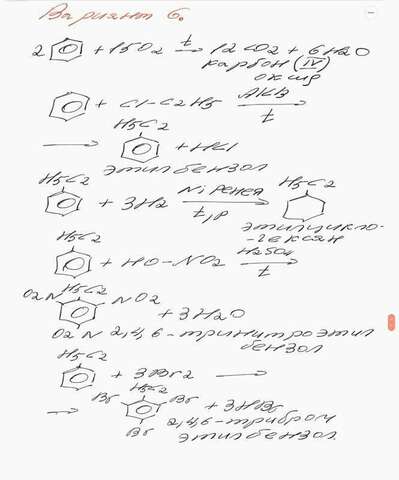 Вариант 6.
2 + 15O2 t→ 12CO2 + 6H2O
карбон (IV)
оксид
+ Cl-C2H5 AlCl3 t →
H5C2
→ + HCl
этилбензол
H5C2 + 3H2 Ni Ренея t,p → H5C2
этилцикло-
-гексан
H5C2 + HO-NO2 H2SO4 t →
O2N H5C2 NO2 + 3H2O
O2N 2,4,6-тринитроэтил
бензол
H5C2 + 3Br2 →
→ Br H5C2 Br + 3HBr
Br 2,4,6-трибром
этилбензол